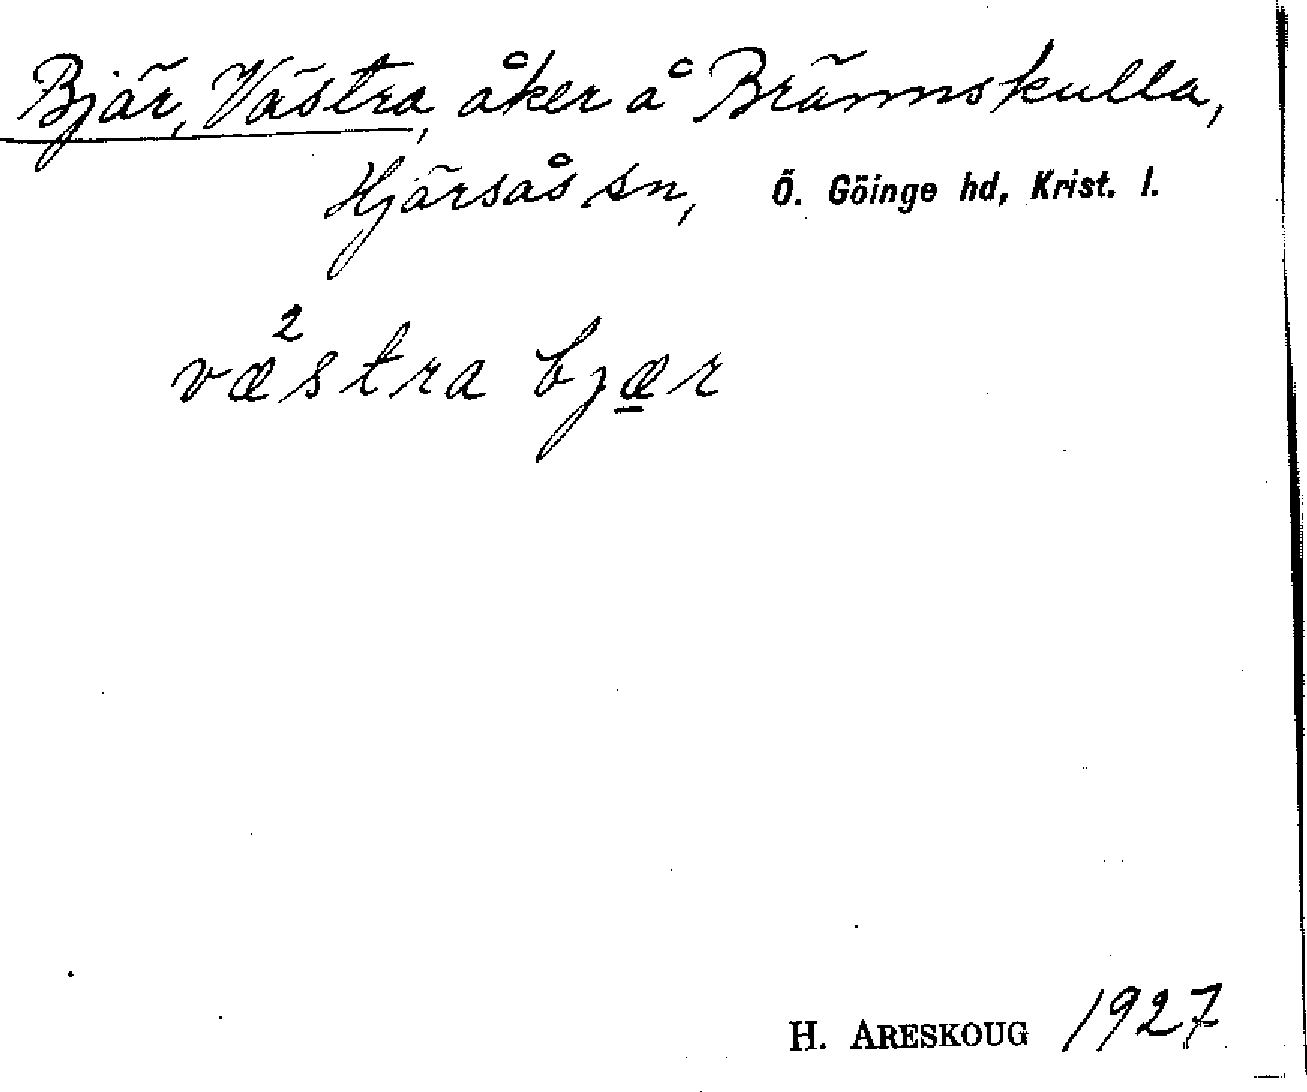 Bjär, Västra, åker å Brännskulla,
Hjärsås sn, Ö. Göinge hd, Krist. l.
væ²stra bjæ̱r
H. ARESKOUG 1927